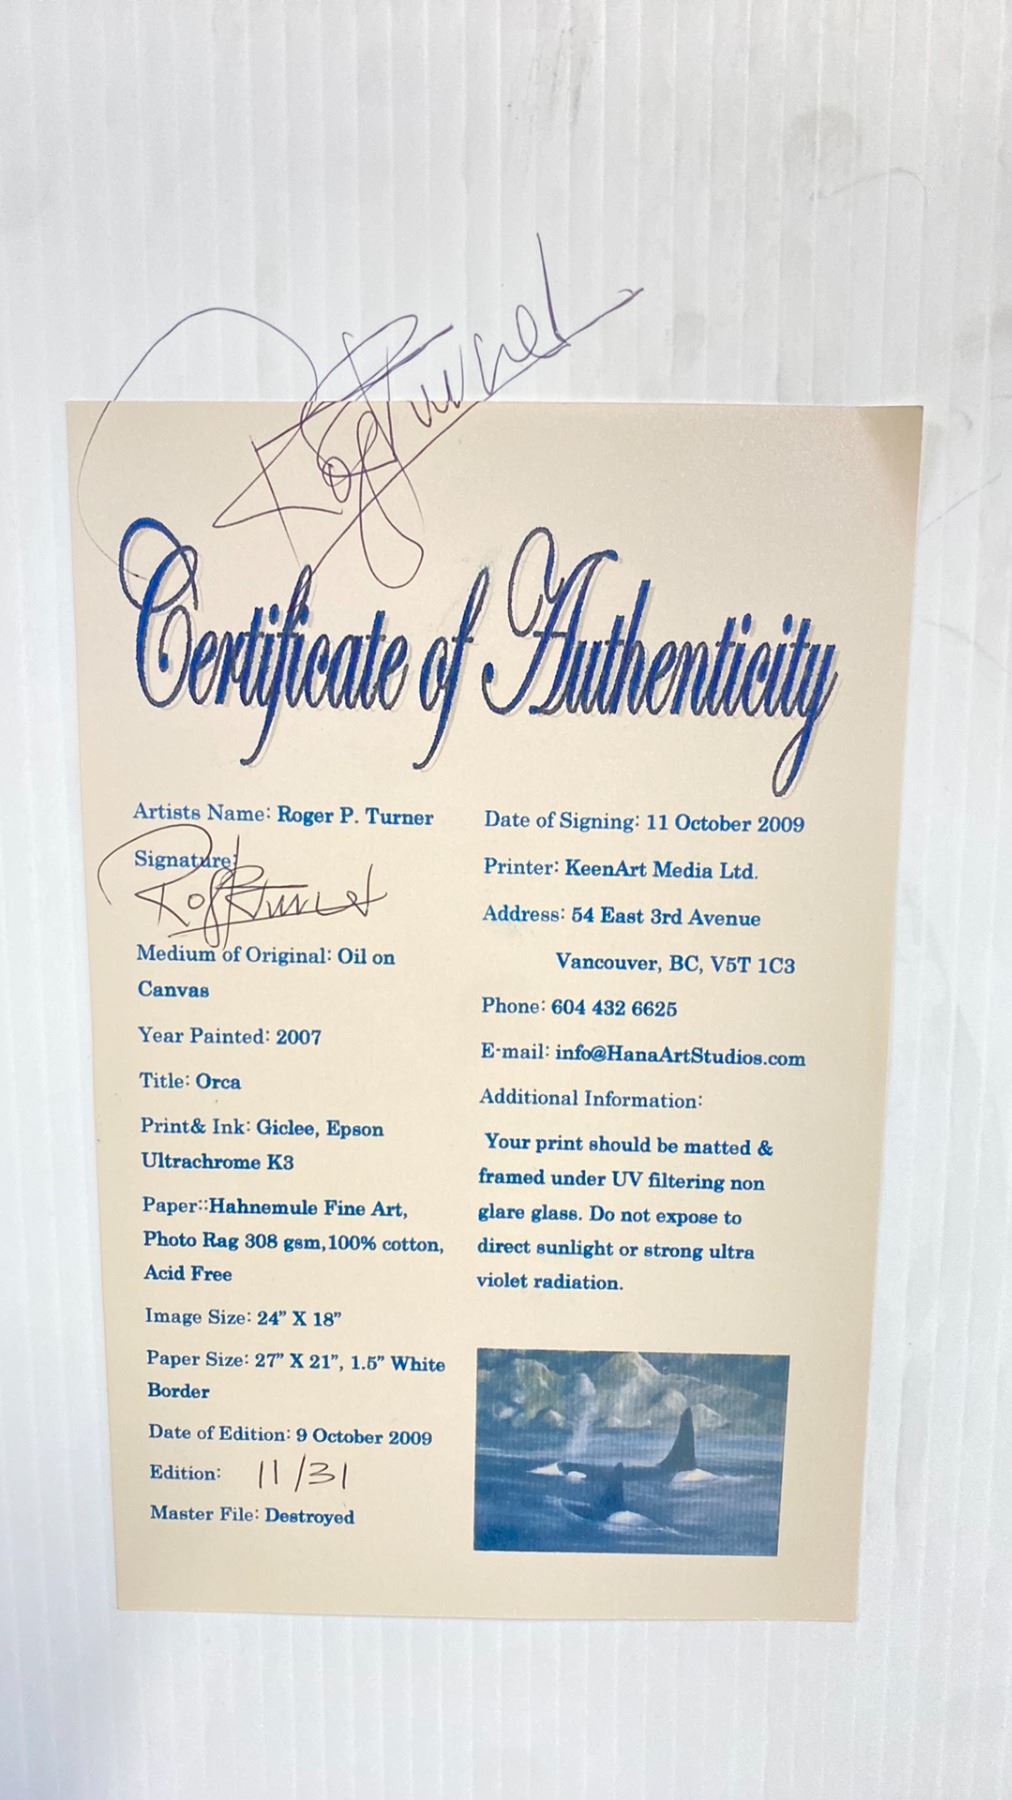 Roger P Turner
Certificate of Authenticity
Artists Name: Roger P. Turner
Signature:
Roger P Turner
Medium of Original: Oil on
Canvas
Year Painted: 2007
Title: Orca
Print& Ink: Giclee, Epson
Ultrachrome K3
Paper::Hahnemule Fine Art,
Photo Rag 308 gsm,100% cotton,
Acid Free
Image Size: 24” X 18”
Paper Size: 27” X 21”, 1.5” White
Border
Date of Edition: 9 October 2009
Edition: 11/31
Master File: Destroyed
Date of Signing: 11 October 2009
Printer: KeenArt Media Ltd.
Address: 54 East 3rd Avenue
Vancouver, BC, V5T 1C3
Phone: 604 432 6625
E-mail: info@HanaArtStudios.com
Additional Information:
Your print should be matted &
framed under UV filtering non
glare glass. Do not expose to
direct sunlight or strong ultra
violet radiation.